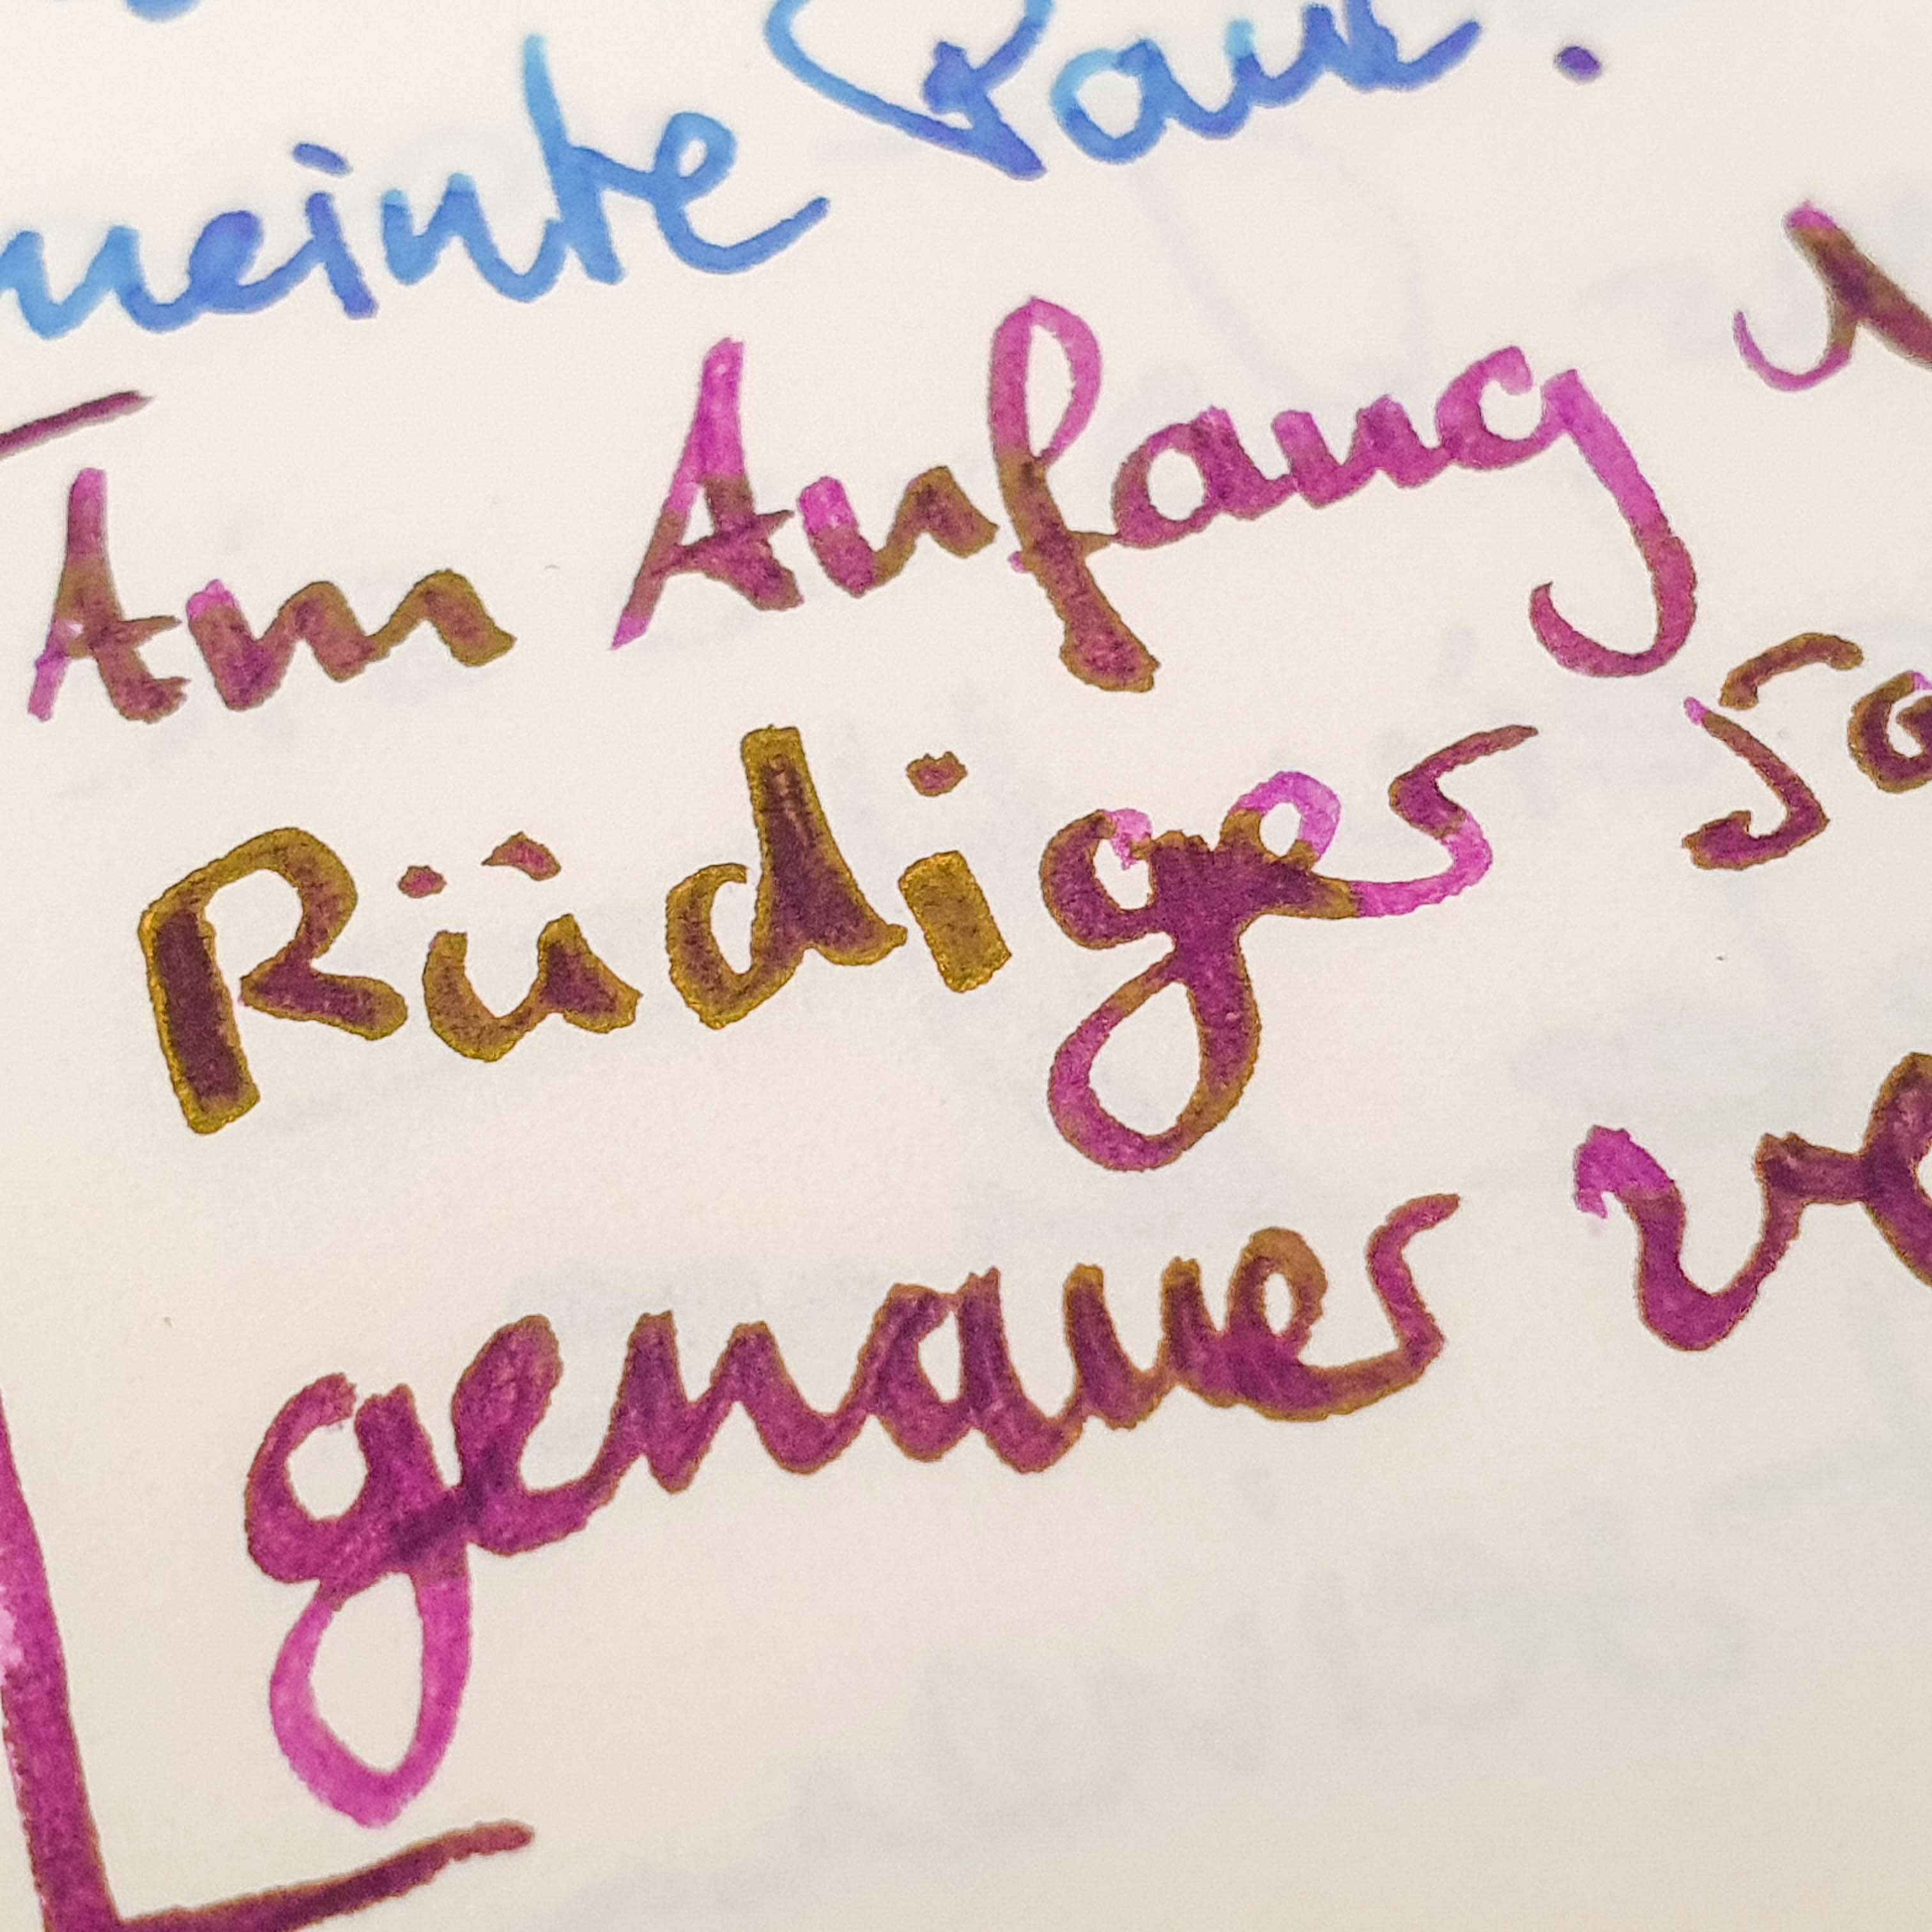 meinte Paul.
Am Anfang
Rüdiger
genauer